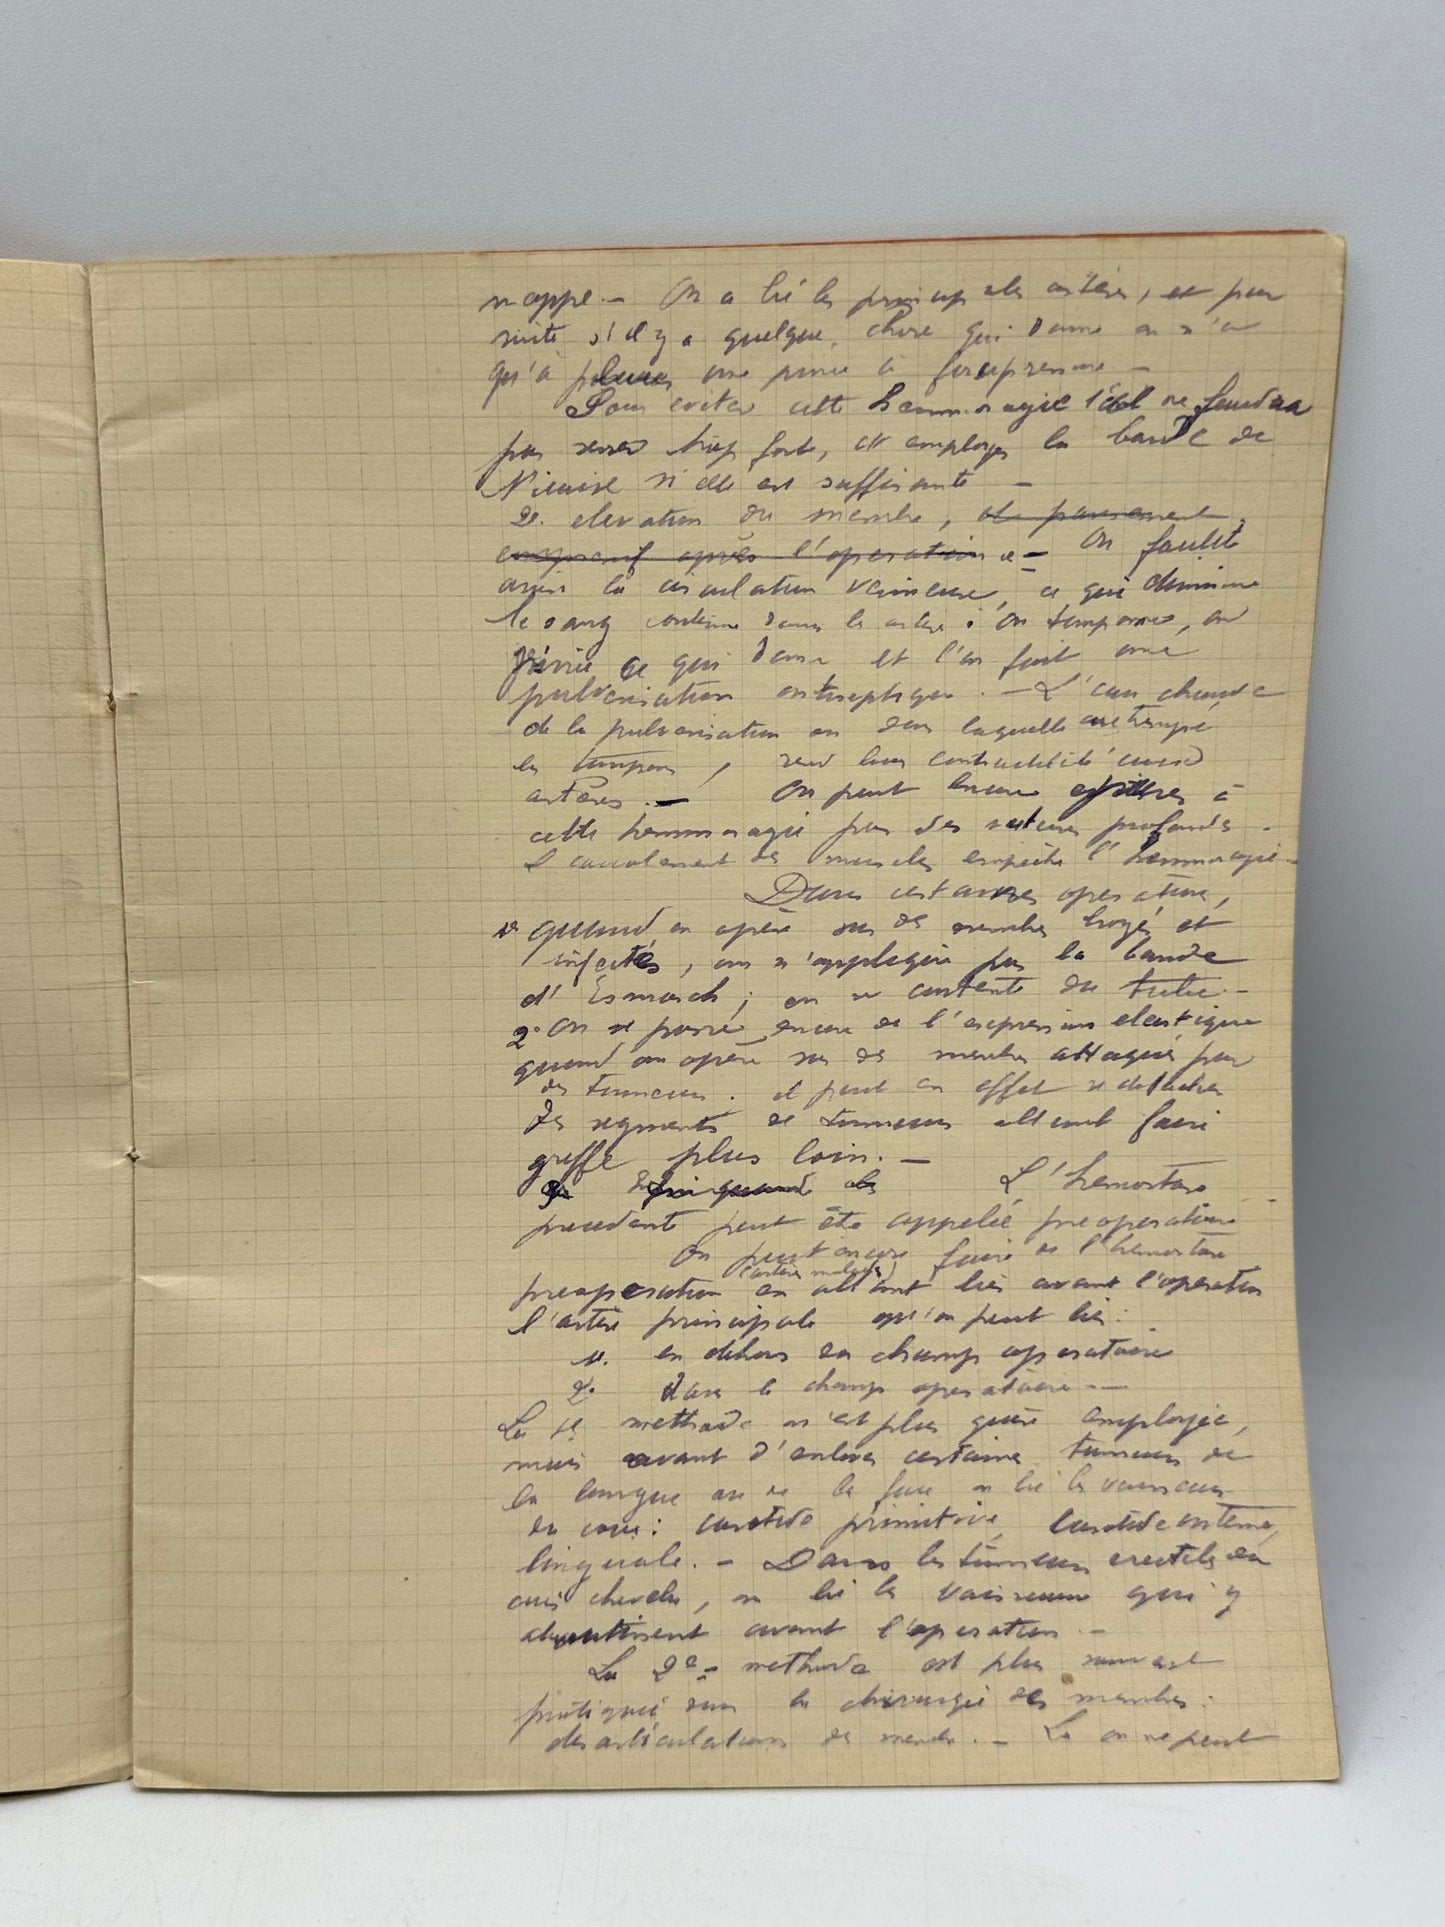 nappe. — On a lié les principales artères, et par
suite s'il y a quelque chose qui donne on n'a
qu'à placer une pince à forcipressure —
Pour eviter cette hemorragie 1° il ne faudra
pas serrer trop fort, et employer la bande de
Nicaise si elle est suffisante —
2° elevation du membre, et pansement
compressif après l'operation — On facilite
ainsi la circulation veineuse, ce qui diminue
le sang contenu dans les artères : On tamponne, on
pince ce qui donne et l'on fait une
pulverisation antiseptique. — L'eau chaude
de la pulverisation ou dans laquelle on trempe
les tampons, rend leur contractilité aux
artères. — On peut encore à
cette hemorragie par des sutures profondes —
L'accolement des muscles empêche l'hemorragie —
Dans certaines operations,
1° quand on opère sur des membres broyés et
infectés, on n'applique pas la bande
d'Esmarch; on se contente du tube —
2° On se passe encore de l'expression elastique
quand on opère sur des membres attaqués par
des tumeurs. il peut en effet se detacher
des segments de tumeurs allant faire
greffe plus loin. —
quand des L'hemostase
precedente peut être appelée preoperatoire
On peut encore faire de l'hemostase
preoperatoire en allant lier avant l'operation
l'artère principale qu'on peut lier :
1°. en dehors du champ operatoire
2° dans le champ operatoire —
La 1e methode n'est plus guère employée,
mais avant d'enlever certaines tumeurs de
la langue ou de la face on lie les vaisseaux
du cou : carotide primitive, carotide externe,
linguale. — Dans les tumeurs erectiles du
cuir chevelu, on lie les vaisseaux qui y
aboutissent avant l'operation. —
La 2e — methode est plus souvent
pratiquée dans la chirurgie des membres :
desarticulations de membres. — Là on ne peut